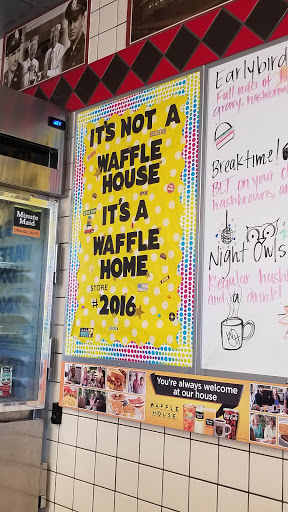 IT'S NOT A
WAFFLE
HOUSE
IT'S A
WAFFLE
HOME
STORE
#2016
Earlybird
Full order of
gravy, hashbrown
Breaktime!
BLT on your ch
hashbrowns an
Night Owls
Regular hash
and a drink!
Minute
Maid
You're always welcome
at our house
WAFFLE
HOUSE